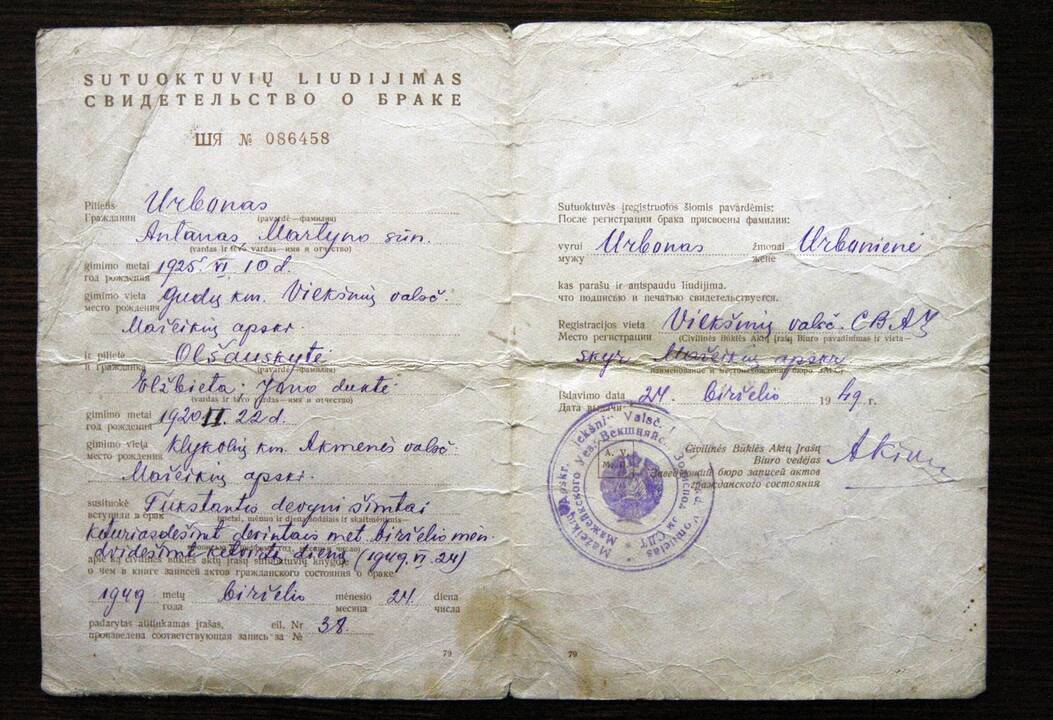 SUTUOKTUVIŲ LIUDIJIMAS
СВИДЕТЕЛЬСТВО О БРАКЕ
ШЯ № 086458
Pilietis Urbonas
Гражданин (pavardė—фамилия)
Antanas Martyno sūn.
(vardas ir tėvo vardas—имя и отчество)
gimimo metai 1925. VI 10 d.
год рождения
gimimo vieta Gudų km. Viekšnių valsč.
место рождения
Mažeikių apskr.
ir pilietė Olšauskytė
и гражданка (pavardė—фамилия)
Elžbieta, Jono duktė
(vardas ir tėvo vardas—имя и отчество)
gimimo metai 1920 II. 22 d.
год рождения
gimimo vieta Klykolių km. Akmenės valsč.
место рождения
Mažeikių apskr.
susituokė Tūkstantis devyni šimtai
вступили в брак (metai, mėnuo ir diena žodžiais ir skaitmenimis—
keturiasdešimt devintais met. birželio mėn.
dvidešimt ketvirtą dieną (1949. VI. 24)
apie ką civilinės būklės aktų įrašų sutuoktuvių knygoje
о чем в книге записей актов гражданского состояния о браке
1949 metų birželio mėnesio 24. diena
года месяца числа
padarytas atitinkamas įrašas, eil. Nr 38.
произведена соответствующая запись за №
79
Sutuoktuvės įregistruotos šiomis pavardėmis:
После регистрации брака присвоены фамилии:
vyrui Urbonas žmonai Urbonienė
мужу жене
kas parašu ir antspaudu liudijima.
что подписью и печатью свидетельствуется.
Registracijos vieta Viekšnių valsč. CBAĮ
Место регистрации (Civilinės Būklės Aktų Įrašų Biuro pavadinimas ir vieta—
skyr. Mažeikių apskr
наименование и местонахождение бюро ЗАГС)
Išdavimo data 24. birželio 1949 r.
Дата выдачи
Civilinės Būklės Aktų Įrašų
Biuro vedėjas
Заведующий бюро записей актов
гражданского состояния
A. V.
М. П.
79